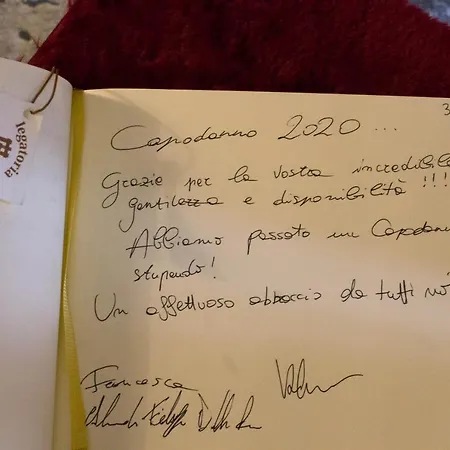 legatoria
3
Capodanno 2020 ...
Grazie per la vostra incredibile
gentilezza e disponibilità !!!
Abbiamo passato un Capodann
stupendo!
Un affettuoso abbraccio da tutti noi
Francesca